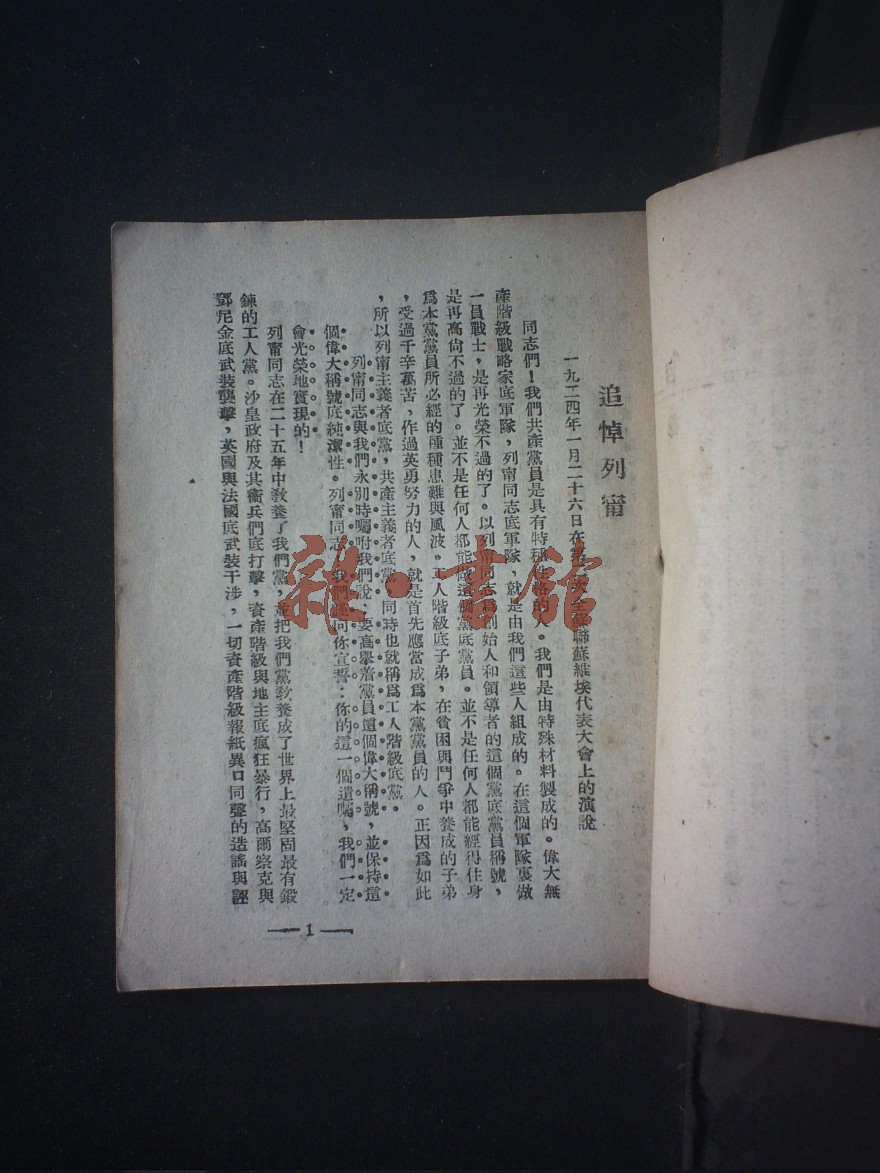 追悼列甯
一九二四年一月二十六日在第二次全蘇聯蘇維埃代表大會上的演說
同志們！我們共產黨員是具有特種性格的人。我們是由特殊材料製成的。偉大無
產階級戰略家底軍隊，列甯同志底軍隊，就是由我們這些人組成的。在這個軍隊裏做
一員戰士，是再光榮不過的了。以列甯同志爲創始人和領導者的這個黨底黨員稱號，
是再高尙不過的了。並不是任何人都能做這個黨底黨員。並不是任何人都能經得住身
爲本黨黨員所必經的種種患難與風波。工人階級底子弟，在貧困與鬥爭中養成的子弟
，受過千辛萬苦，作過英勇努力的人，就是首先應當成爲本黨黨員的人。正因爲如此
，所以列甯主義者底黨，共產主義者底黨，同時也就稱爲工人階級底黨。
列甯同志與我們永別時囑咐我們說，要高舉着黨員這個偉大稱號，並保持這
個偉大稱號底純潔性。列甯同志，我們謹向你宣誓：你的這一個遺囑，我們一定
會光榮地實現的！
列甯同志在二十五年中敎養了我們黨，並把我們黨敎養成了世界上最堅固最有鍛
鍊的工人黨。沙皇政府及其衞兵們底打擊，資產階級與地主底瘋狂暴行，高爾察克與
鄧尼金底武裝襲擊，英國與法國底武裝干涉，一切資產階級報紙異口同聲的造謠與誣
— 1 —
雜·書館